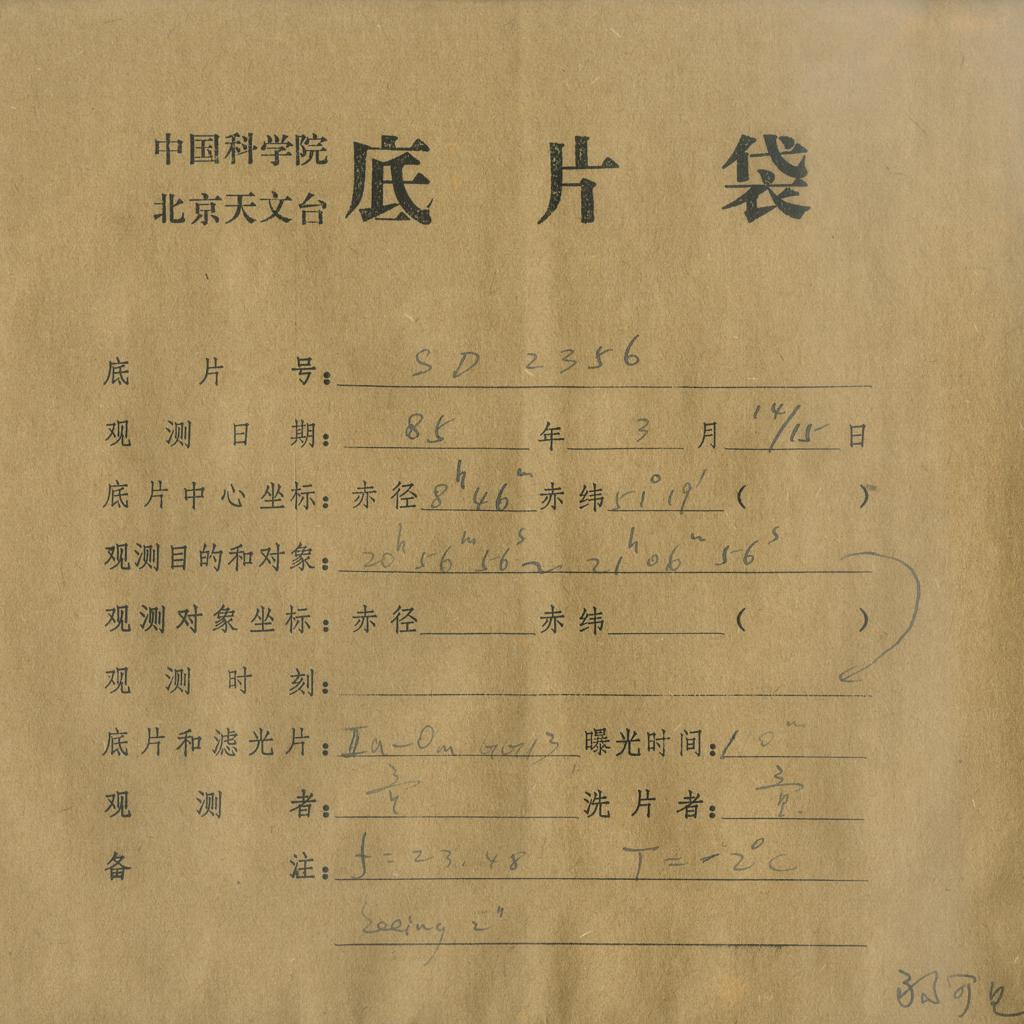 中国科学院
北京天文台
底片袋
底片号: SD 2356
观测日期: 85 年 3 月 14/15 日
底片中心坐标: 赤径 8h46m 赤纬 51°19′ ( )
观测目的和对象: 20h56m56s ~ 21h06m56s
观测对象坐标: 赤径 赤纬 ( )
观测时刻:
底片和滤光片: IIa-O GG13 曝光时间: 10m
观测者: 洗片者:
备注: f=23.48 T=-2°C
Seeing 2″